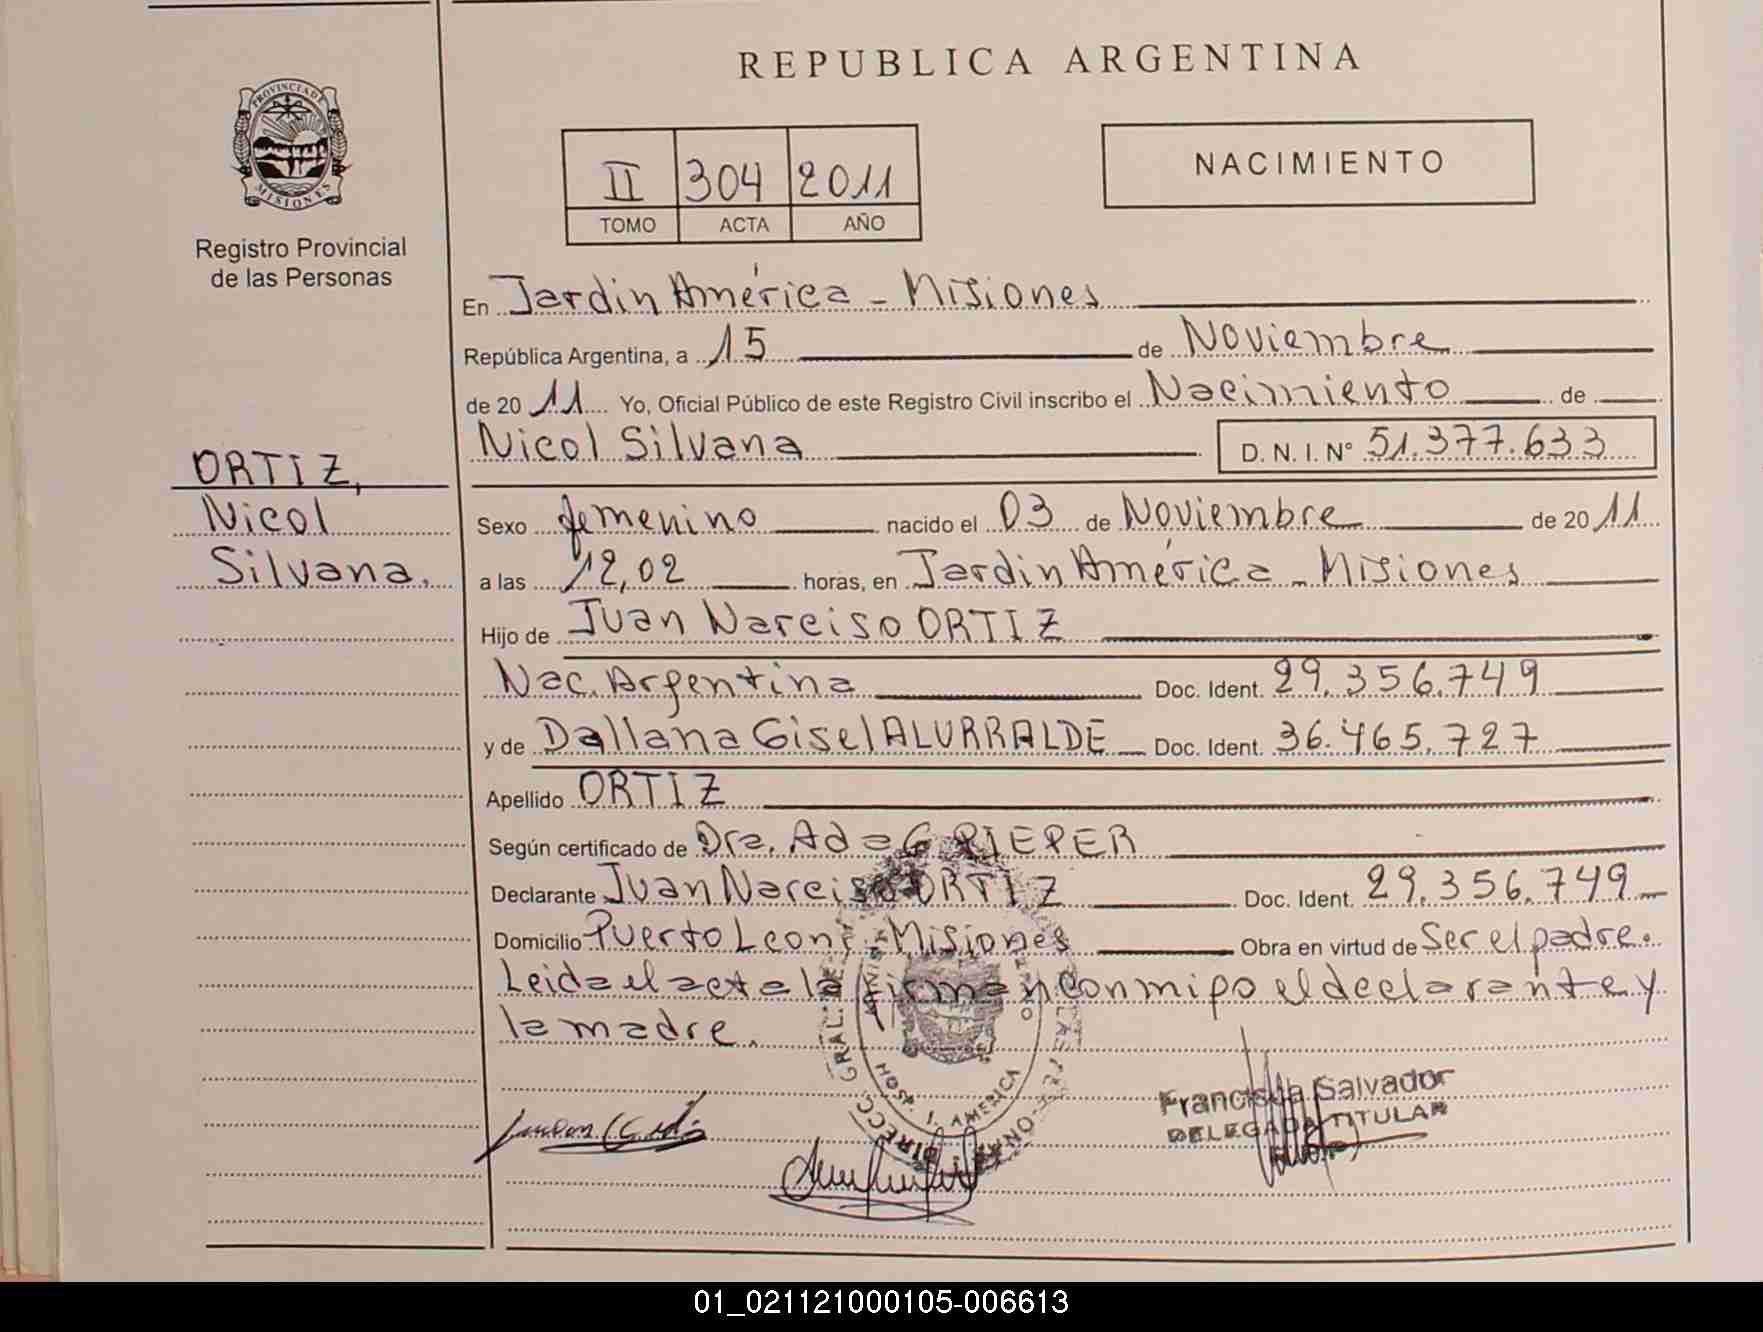 REPUBLICA ARGENTINA
PROVINCIA DE
MISIONES
Registro Provincial
de las Personas
II 304 2011
TOMO ACTA AÑO
NACIMIENTO
En Jardin América - Misiones
República Argentina, a 15 de Noviembre
de 2011 Yo, Oficial Público de este Registro Civil inscribo el Nacimiento de
Nicol Silvana D. N. I. Nº 51.377.633
ORTIZ,
Nicol
Silvana.
Sexo femenino nacido el 03 de Noviembre de 2011
a las 12,02 horas, en Jardin América - Misiones
Hijo de Juan Narciso ORTIZ
Nac. Argentina Doc. Ident. 29.356.749
y de Dallana Gisel ALURRALDE Doc. Ident. 36.465.727
Apellido ORTIZ
Según certificado de Dra. Ada G PIEPER
Declarante Juan Narciso ORTIZ Doc. Ident. 29.356.749
Domicilio Puerto Leoni - Misiones Obra en virtud de Ser el padre.
Leida el acta la firman conmigo el declarante y
la madre.
DIRECC. GRAL. DE
AMERICA
Francisca Salvador
DELEGADA TITULAR
01_021121000105-006613